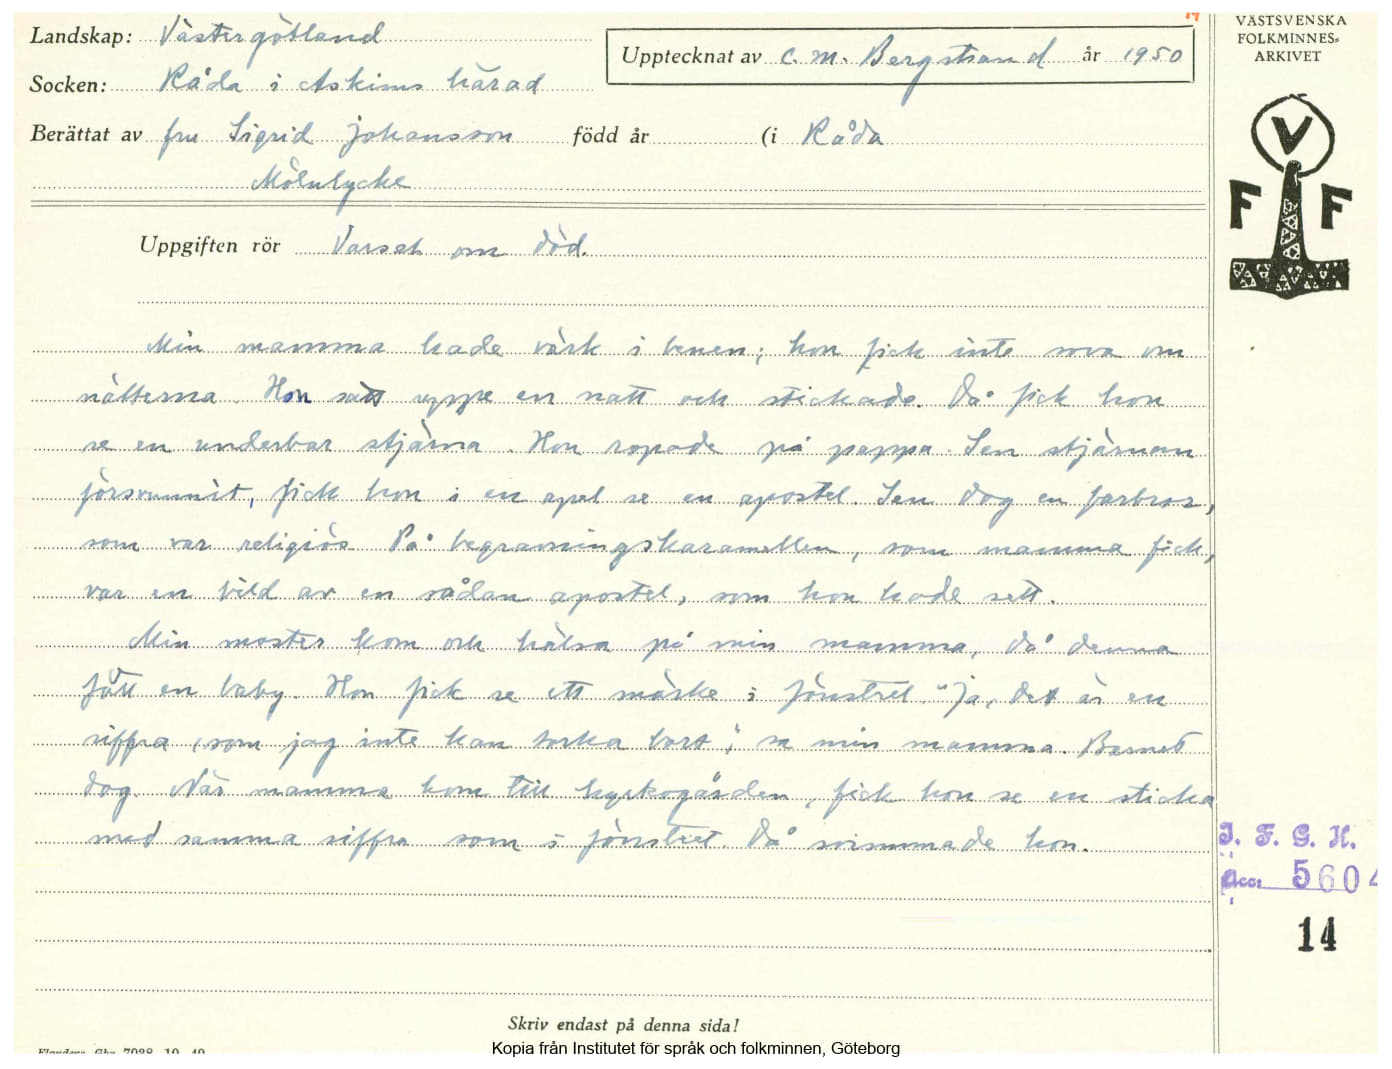 Landskap: Västergötland
Socken: Råda i Askims härad
Upptecknat av C. M. Bergstrand år 1950
Berättat av fru Sigrid Johansson född år (i Råda
Mölnlycke
VÄSTSVENSKA
FOLKMINNES-
ARKIVET
V
F F
Uppgiften rör Varsel om död.
Min mamma hade värk i benen; hon fick inte sova om
nätterna. Hon satt uppe en natt och stickade. Då fick hon
se en underbar stjärna. Hon ropade på pappa. Sen stjärnan
försvunnit, fick hon i en apel se en apostel. Sen dog en farbror,
som var religiös På begravningskaramellen, som mamma fick,
var en bild av en sådan apostel, som hon hade sett.
Min moster kom och hälsa på min mamma, då denna
fått en baby. Hon fick se ett märke i fönstret "Ja, det är en
siffra, som jag inte kan torka bort", sa min mamma. Barnet
dog. När mamma kom till kyrkogården, fick hon se en sticka
med samma siffra som i fönstret. Då svimmade hon.
I. F. G. H.
Acc: 5604
14
Skriv endast på denna sida!
Kopia från Institutet för språk och folkminnen, Göteborg